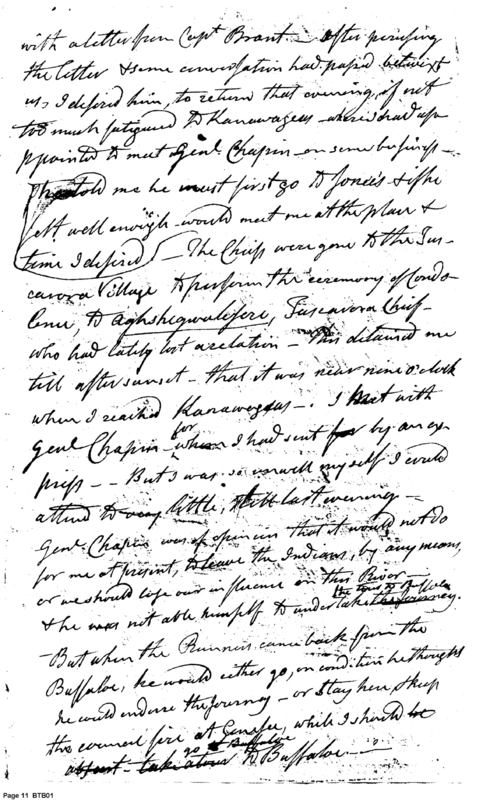 with a letter from Capt Brant — after perusing
the letter & some conversation had pass'd betwixt
us, I desired him, to return that evening, if not
too much fatigued to Kanawageas — where I had ap-
ppointed to meet Genl. Chapin — on some business —
He told me he must first go to Jones's & if he
felt well enough — would meet me at the place &
time I desired — The Chiefs were gone to the Tus-
carora Village to perform the ceremony of Condo-
lence, to Aghshegwalesere, Tuscarora Chief —
who had lately lost a relation — This detained me
till after sunset — that it was near nine o'clock
when I reached Kanawageas —. I Met with
Genl. Chapin — for whom I had sent for by an ex-
press — — But I was so unwell myself I could
attend to very little, still last evening —
Genl. Chapin was of opinion that it would not do
for me at present, to leave the Indians, by any means,
or we should lose our influence on this River —
the tour to Buffaloe
& he was not able himself to undertake the Journey.
But when the Runners came back from the
Buffaloe, he would either go, on condition he thought
he could endure the Journey — or Stay here, & keep
the council fire at Genesee, while I should be
go to Buffaloe
absent take a tour to Buffaloe —